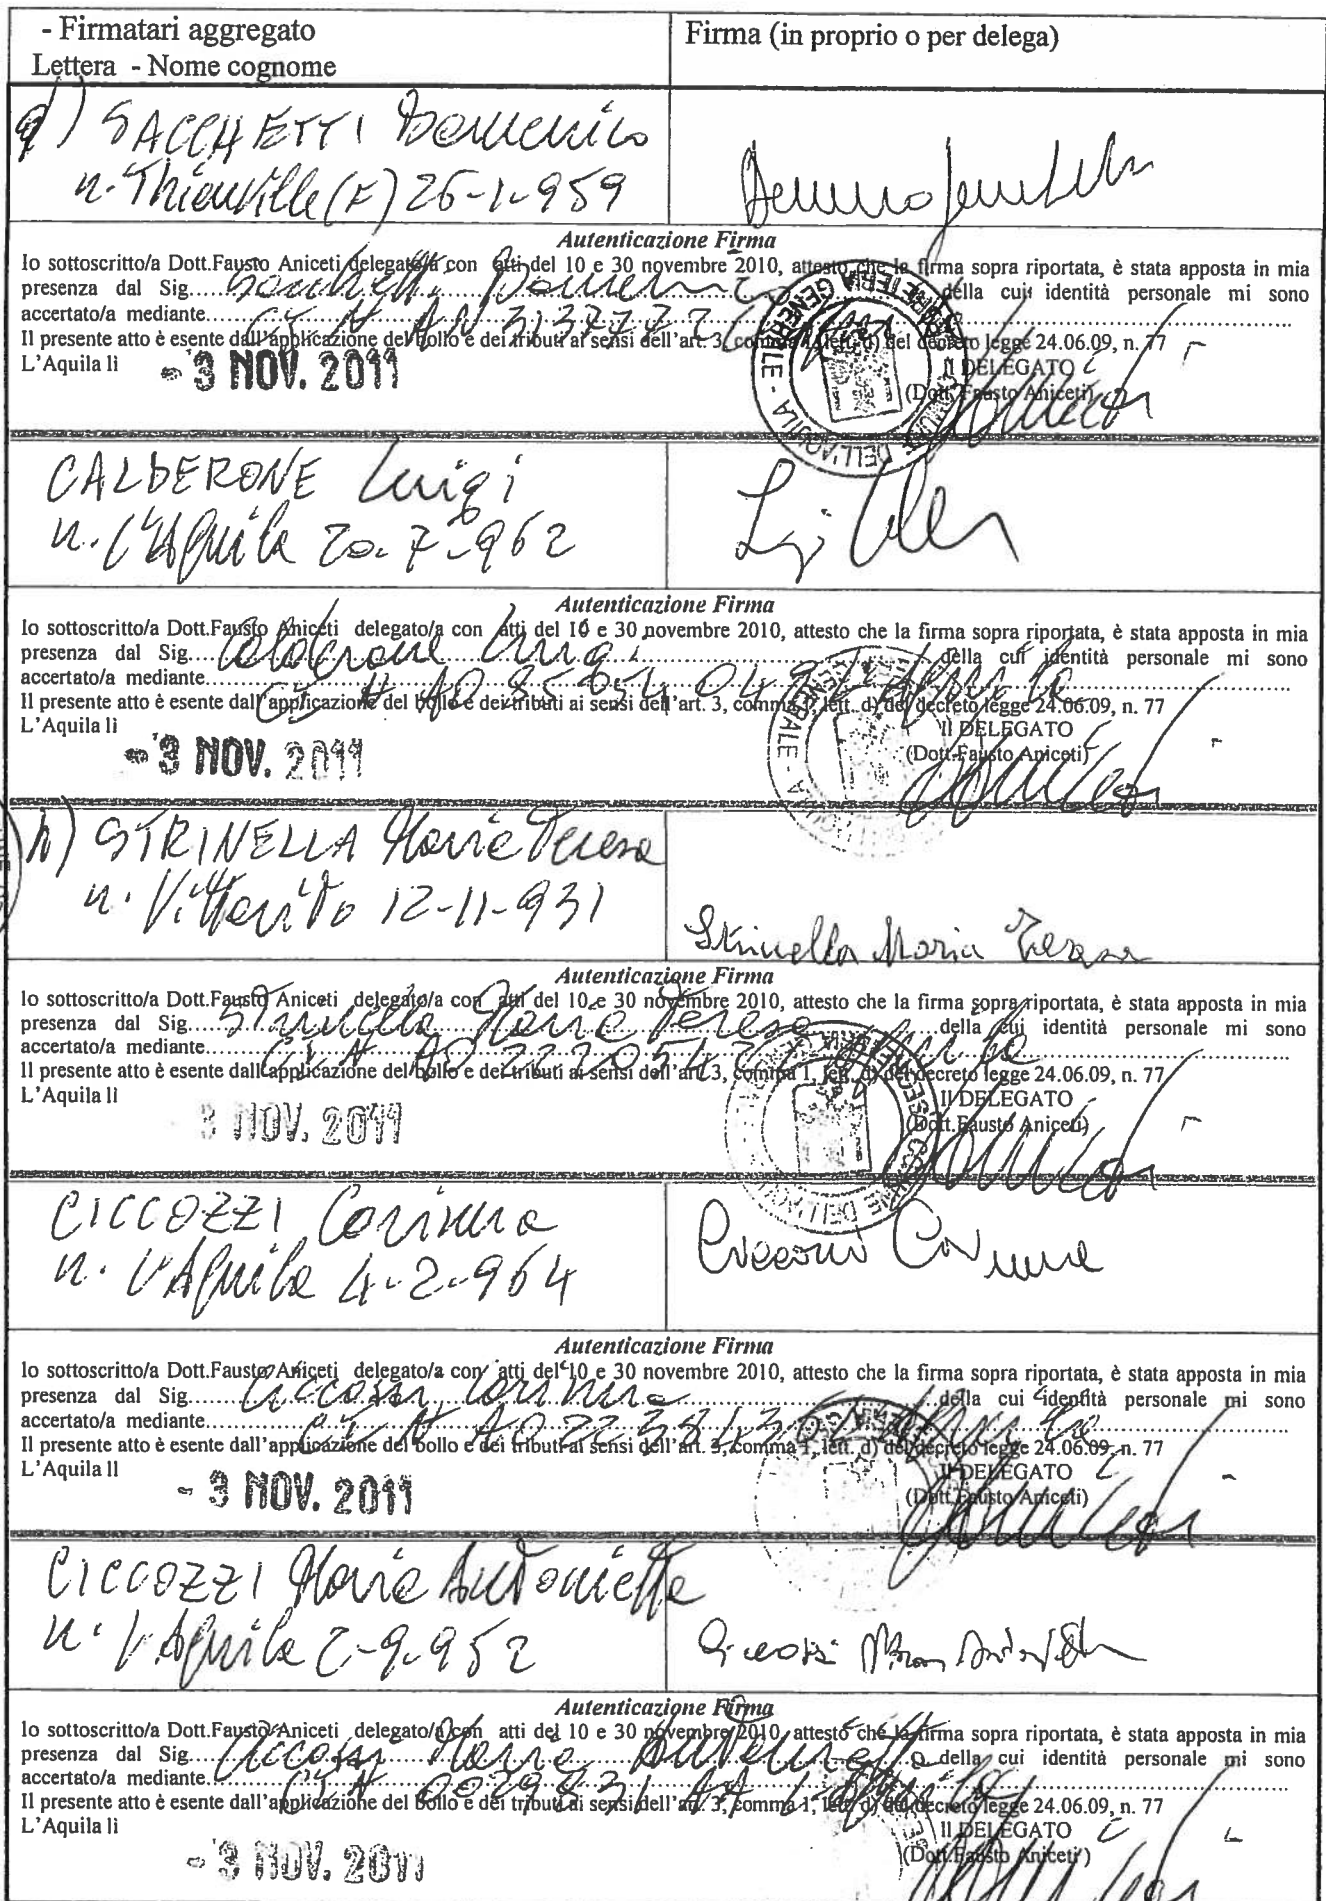 - Firmatari aggregato
Lettera - Nome cognome
Firma (in proprio o per delega)
g) SACCHETTI Domenico
n. Thionville (F) 26-1-959
Autenticazione Firma
Io sottoscritto/a Dott.Fausto Aniceti delegato/a con atti del 10 e 30 novembre 2010, attesto che la firma sopra riportata, è stata apposta in mia
presenza dal Sig. Sacchetti Domenico della cui identità personale mi sono
accertato/a mediante CI N AN 3137772
Il presente atto è esente dall'applicazione del bollo e dei tributi ai sensi dell'art. 3, comma 1, lett. d) del decreto legge 24.06.09, n. 77
L'Aquila lì - 3 NOV. 2011
Il DELEGATO
(Dott. Fausto Aniceti)
CALDERONE Luigi
n. L'Aquila 20-7-962
Autenticazione Firma
Io sottoscritto/a Dott.Fausto Aniceti delegato/a con atti del 10 e 30 novembre 2010, attesto che la firma sopra riportata, è stata apposta in mia
presenza dal Sig. Calderone Luigi della cui identità personale mi sono
accertato/a mediante CI N L'Aquila
Il presente atto è esente dall'applicazione del bollo e dei tributi ai sensi dell'art. 3, comma 1, lett. d) del decreto legge 24.06.09, n. 77
L'Aquila lì - 3 NOV. 2011
Il DELEGATO
(Dott.Fausto Aniceti)
h) STRINELLA Maria Teresa
n. Vittorito 12-11-931
Strinella Maria Teresa
Autenticazione Firma
Io sottoscritto/a Dott.Fausto Aniceti delegato/a con atti del 10 e 30 novembre 2010, attesto che la firma sopra riportata, è stata apposta in mia
presenza dal Sig. Strinella Maria Teresa della cui identità personale mi sono
accertato/a mediante CI N L'Aquila
Il presente atto è esente dall'applicazione del bollo e dei tributi ai sensi dell'art. 3, comma 1, lett. d) del decreto legge 24.06.09, n. 77
L'Aquila lì 3 NOV. 2011
Il DELEGATO
(Dott.Fausto Aniceti)
CICCOZZI Corinna
n. L'Aquila 4-2-964
Ciccozzi Corinna
Autenticazione Firma
Io sottoscritto/a Dott.Fausto Aniceti delegato/a con atti del 10 e 30 novembre 2010, attesto che la firma sopra riportata, è stata apposta in mia
presenza dal Sig. Ciccozzi Corinna della cui identità personale mi sono
accertato/a mediante CI N L'Aquila
Il presente atto è esente dall'applicazione del bollo e dei tributi ai sensi dell'art. 3, comma 1, lett. d) del decreto legge 24.06.09, n. 77
L'Aquila lì - 3 NOV. 2011
Il DELEGATO
(Dott.Fausto Aniceti)
CICCOZZI Maria Antonietta
n. L'Aquila 2-9-952
Ciccozzi Maria Antonietta
Autenticazione Firma
Io sottoscritto/a Dott.Fausto Aniceti delegato/a con atti del 10 e 30 novembre 2010, attesto che la firma sopra riportata, è stata apposta in mia
presenza dal Sig. Ciccozzi Maria Antonietta della cui identità personale mi sono
accertato/a mediante CI N 0029831 AA L'Aquila
Il presente atto è esente dall'applicazione del bollo e dei tributi ai sensi dell'art. 3, comma 1, lett. d) del decreto legge 24.06.09, n. 77
L'Aquila lì - 3 NOV. 2011
Il DELEGATO
(Dott.Fausto Aniceti)